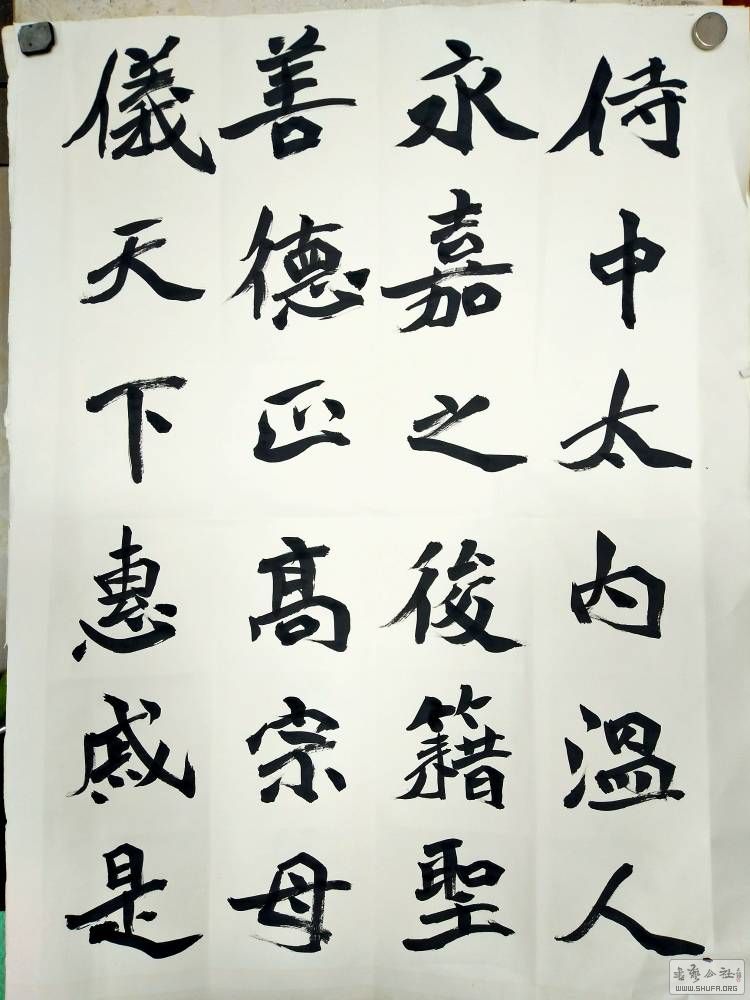 侍中太内温人
永嘉之後籍聖
善德正高宗母
儀天下惠戚是
书艺公社
WWW.SHUFA.ORG